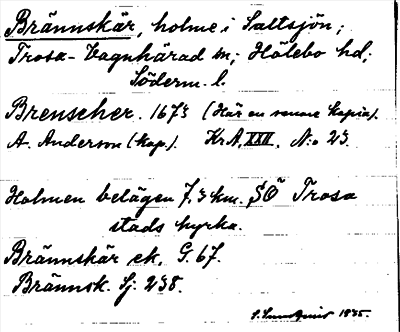 Brännskär, holme i Saltsjön;
Trosa-Vagnhärad sn; Hölebo hd;
Söderm. l.
Brenscher. 1673 (Här en senare kopia).
A. Anderson (kop.). Kr.A. XXII. N:o 23.
Holmen belägen 7,3 km. SÖ Trosa
stads kyrka.
Brännskär ek. G. 67.
Brännsk. Sj: 238.
S. Sundqvist 1935.